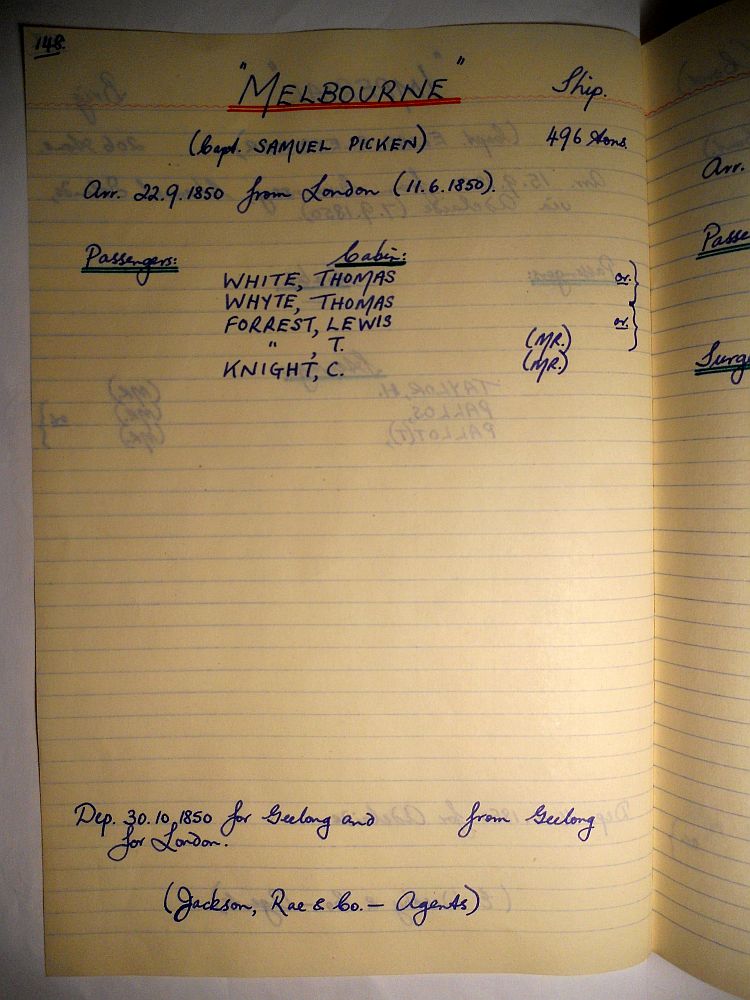 148.
"MELBOURNE" Ship.
(Capt. SAMUEL PICKEN) 496 tons.
Arr. 22.9.1850 from London (11.6.1850).
Passengers: Cabin:
WHITE, THOMAS or
WHYTE, THOMAS
FORREST, LEWIS or
" , T. (MR.)
KNIGHT, C. (MR.)
Dep. 30.10.1850 for Geelong and from Geelong
for London.
(Jackson, Rae & Co. — Agents)
Arr.